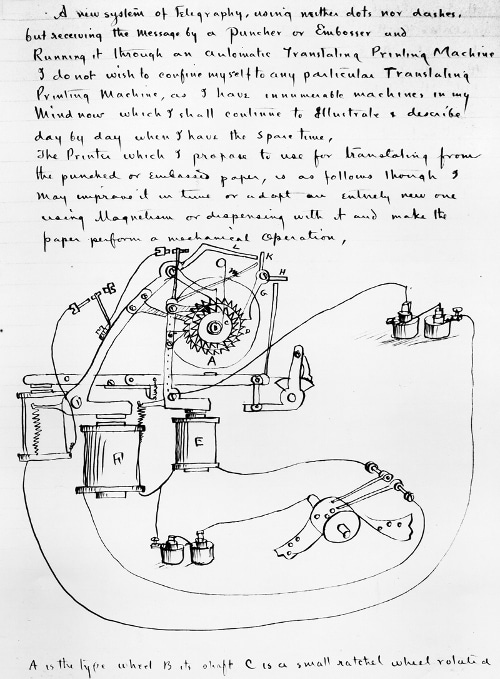 A new system of Telegraphy, using neither dots nor dashes,
but receiving the message by a Puncher or Embosser and
Running it through an automatic Translating Printing Machine
I do not wish to confine myself to any particular Translating
Printing Machine, as I have innumerable machines in my
Mind now which I shall continue to Illustrate & describe
day by day when I have the spare time,
The Printer which I propose to use for translating from
the punched or Embossed paper, is as follows though I
may improve it in time or adapt an Entirely new one
using Magnetism or dispensing with it and make the
paper perform a mechanical operation,
L
K
C
H
G
D
B
A
E
A is the type wheel B its shaft C is a small ratchet wheel rotated